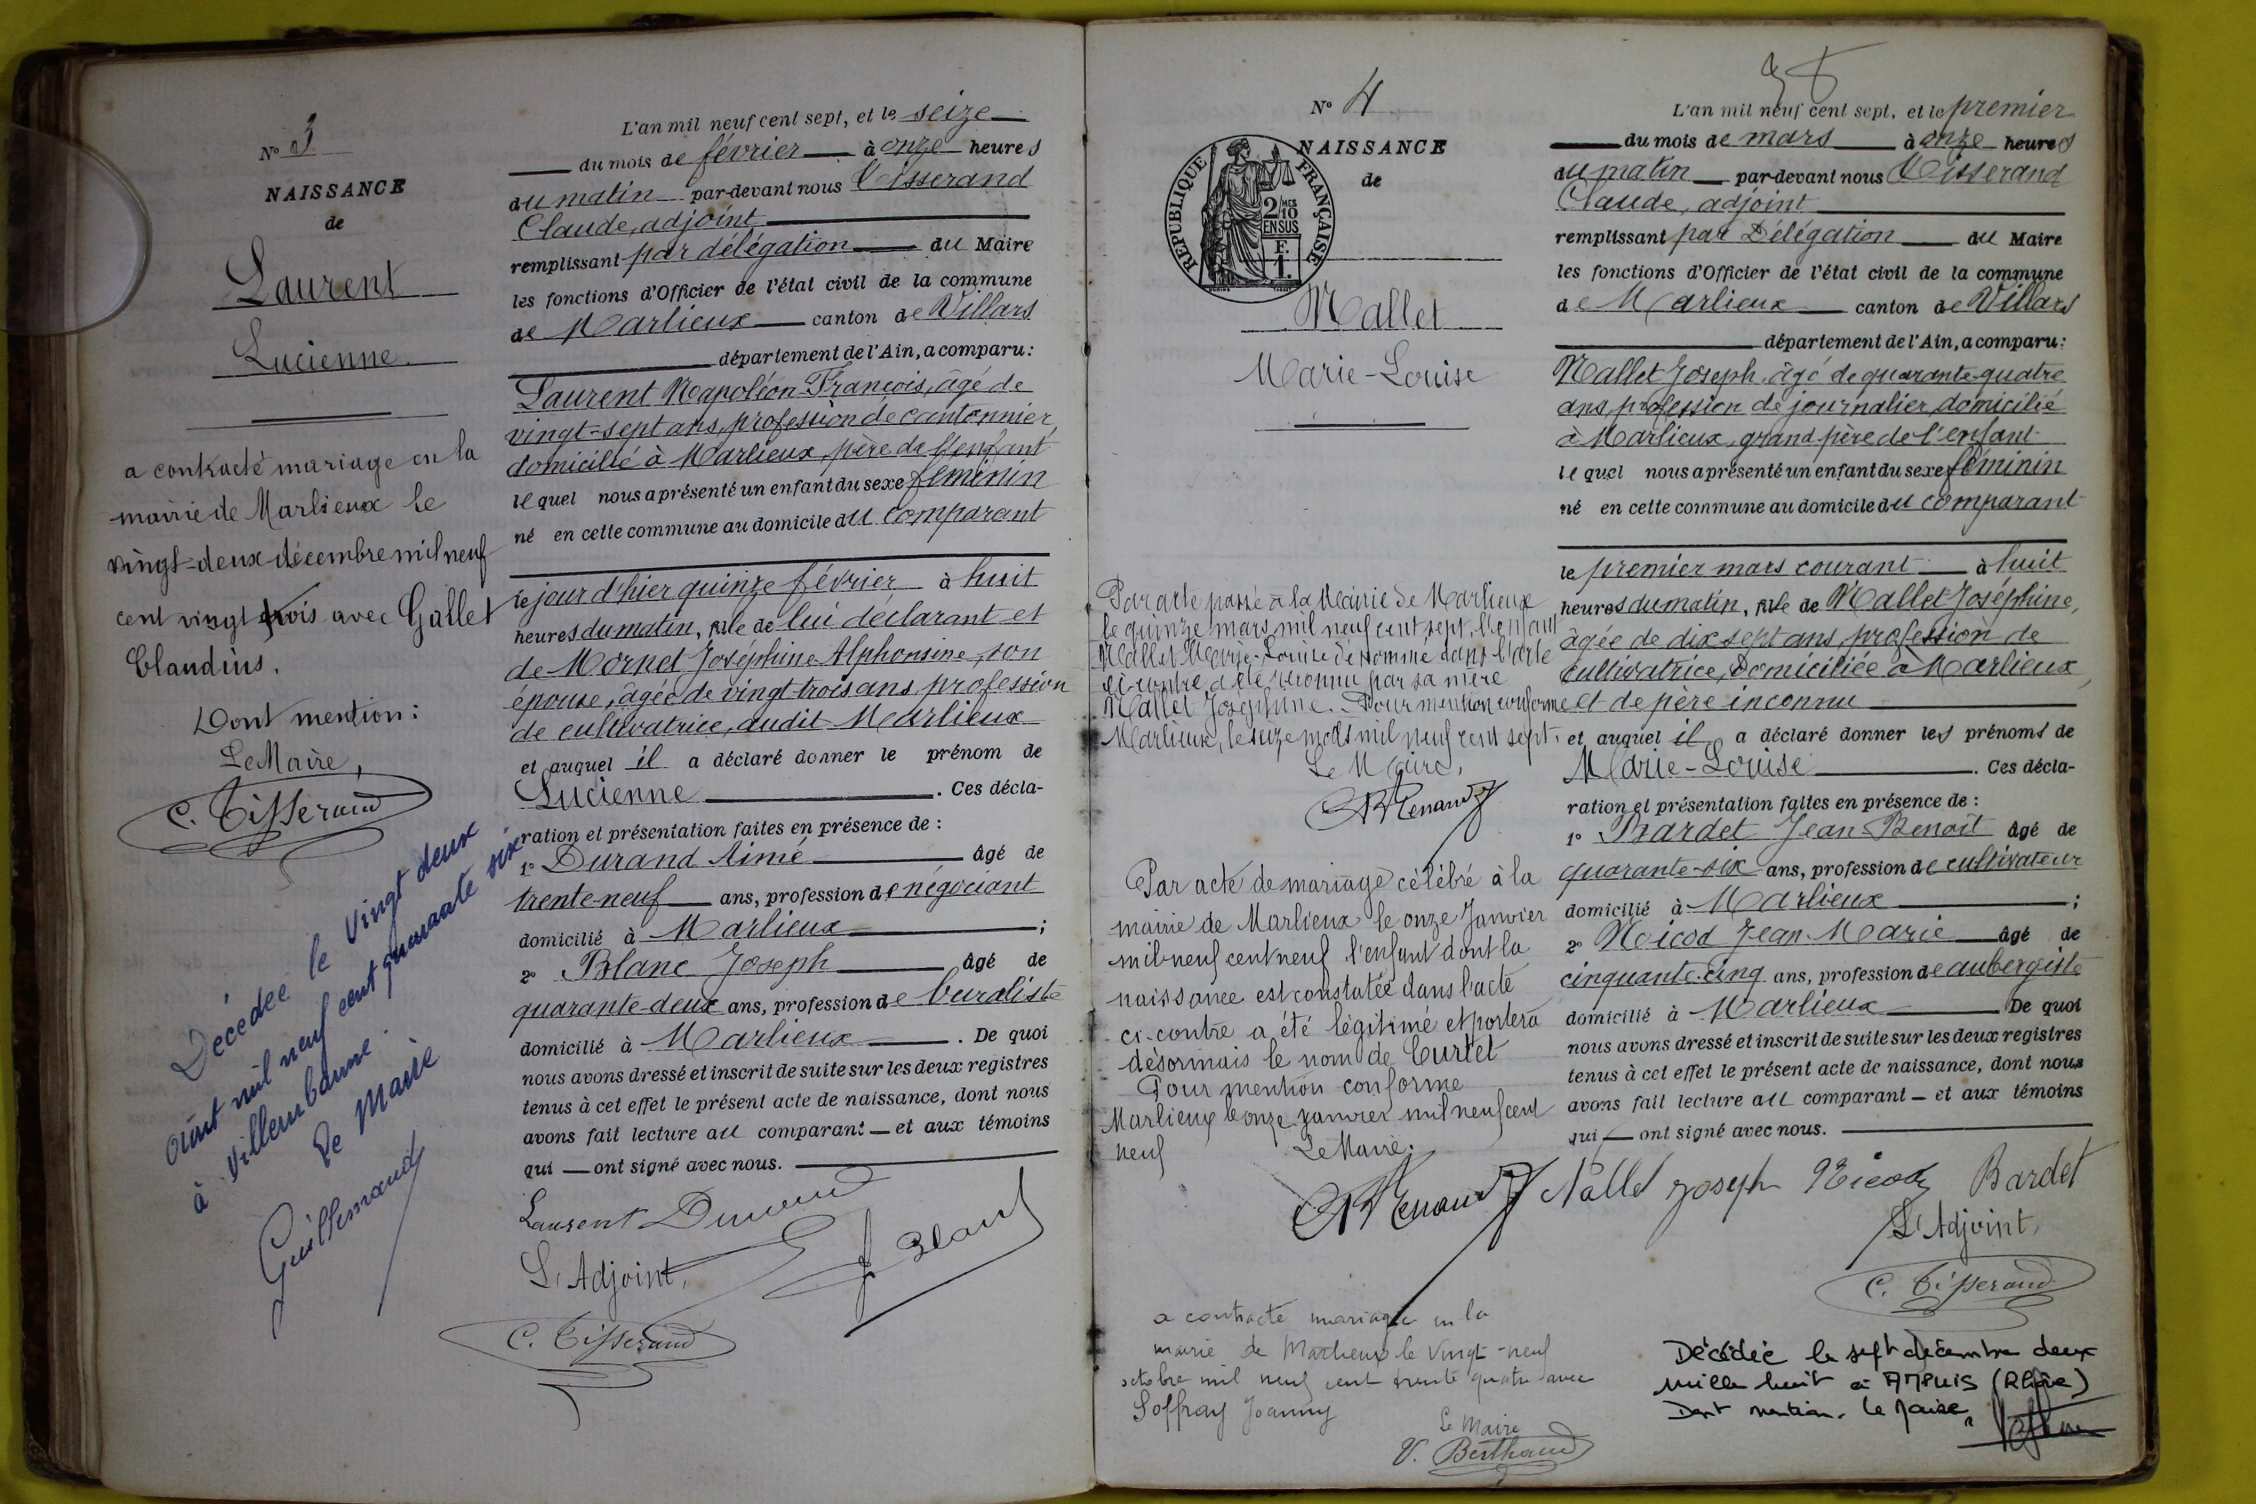 N° 3
NAISSANCE
de
Laurent
Lucienne
a contracté mariage en la
mairie de Marlieux le
vingt-deux décembre mil neuf
cent vingt trois avec Gallet
Claudius.
Dont mention:
Le Maire,
C. Tisserand
Décédée le vingt deux
août mil neuf cent quarante six
à Villeurbanne.
Le Maire
Guillemaud
L'an mil neuf cent sept, et le seize
du mois de février à onze heures
du matin par-devant nous Tisserand
Claude, adjoint
remplissant par délégation du Maire
les fonctions d'Officier de l'état civil de la commune
de Marlieux canton de Villars
département de l'Ain, a comparu:
Laurent Napoléon François, âgé de
vingt-sept ans, profession de cantonnier,
domicilié à Marlieux, père de l'enfant
lequel nous a présenté un enfant du sexe féminin
né en cette commune au domicile du comparant
le jour d'hier quinze février à huit
heures du matin, fille de lui déclarant et
de Mornet Joséphine Alphonsine, son
épouse, âgée de vingt-trois ans profession
de cultivatrice, audit Marlieux
et auquel il a déclaré donner le prénom de
Lucienne. Ces décla-
ration et présentation faites en présence de:
1° Durand Aimé âgé de
trente-neuf ans, profession de négociant
domicilié à Marlieux;
2° Blanc Joseph âgé de
quarante-deux ans, profession de buraliste
domicilié à Marlieux. De quoi
nous avons dressé et inscrit de suite sur les deux registres
tenus à cet effet le présent acte de naissance, dont nous
avons fait lecture au comparant — et aux témoins
qui — ont signé avec nous.
Laurent Durand
J. Blanc
L'Adjoint,
C. Tisserand
N° 4
NAISSANCE
de
RÉPUBLIQUE FRANÇAISE
2/10 MES
EN SUS
F.
1.
Mallet
Marie-Louise
Par acte passé à la Mairie de Marlieux
le quinze mars mil neuf cent sept, l'enfant
Mallet Marie-Louise dénommé dans l'acte
ci-contre a été reconnu par sa mère
Mallet Joséphine. Pour mention conforme
Marlieux, le seize mars mil neuf cent sept.
Le Maire,
Renaud
Par acte de mariage célébré à la
mairie de Marlieux le onze Janvier
mil neuf cent neuf l'enfant dont la
naissance est constatée dans l'acte
ci-contre a été légitimé et portera
désormais le nom de Curtet
Pour mention conforme
Marlieux le onze janvier mil neuf cent
neuf
Le Maire.
Renaud
a contracté mariage en la
mairie de Marlieux le vingt-neuf
octobre mil neuf cent trente quatre avec
Soffray Joanny
Le Maire
V. Berthaud
L'an mil neuf cent sept, et le premier
du mois de mars à onze heures
du matin par-devant nous Tisserand
Claude, adjoint
remplissant par Délégation du Maire
les fonctions d'Officier de l'état civil de la commune
de Marlieux canton de Villars
département de l'Ain, a comparu:
Mallet Joseph, âgé de quarante-quatre
ans, profession de journalier, domicilié
à Marlieux, grand-père de l'enfant
lequel nous a présenté un enfant du sexe féminin
né en cette commune au domicile du comparant
le premier mars courant à huit
heures du matin, fille de Mallet Joséphine,
âgée de dix sept ans, profession de
cultivatrice, Domiciliée à Marlieux,
et de père inconnu
et auquel il a déclaré donner les prénoms de
Marie-Louise. Ces décla-
ration et présentation faites en présence de:
1° Bardet Jean Benoît âgé de
quarante-six ans, profession de cultivateur
domicilié à Marlieux;
2° Nicod Jean-Marie âgé de
cinquante-cinq ans, profession de aubergiste
domicilié à Marlieux De quoi
nous avons dressé et inscrit de suite sur les deux registres
tenus à cet effet le présent acte de naissance, dont nous
avons fait lecture au comparant — et aux témoins
qui — ont signé avec nous.
Mallet Joseph Nicod Bardet
L'Adjoint,
C. Tisserand
Décédée le sept décembre deux
mille huit à AMPUIS (Rhône)
Dont mention. Le Maire,